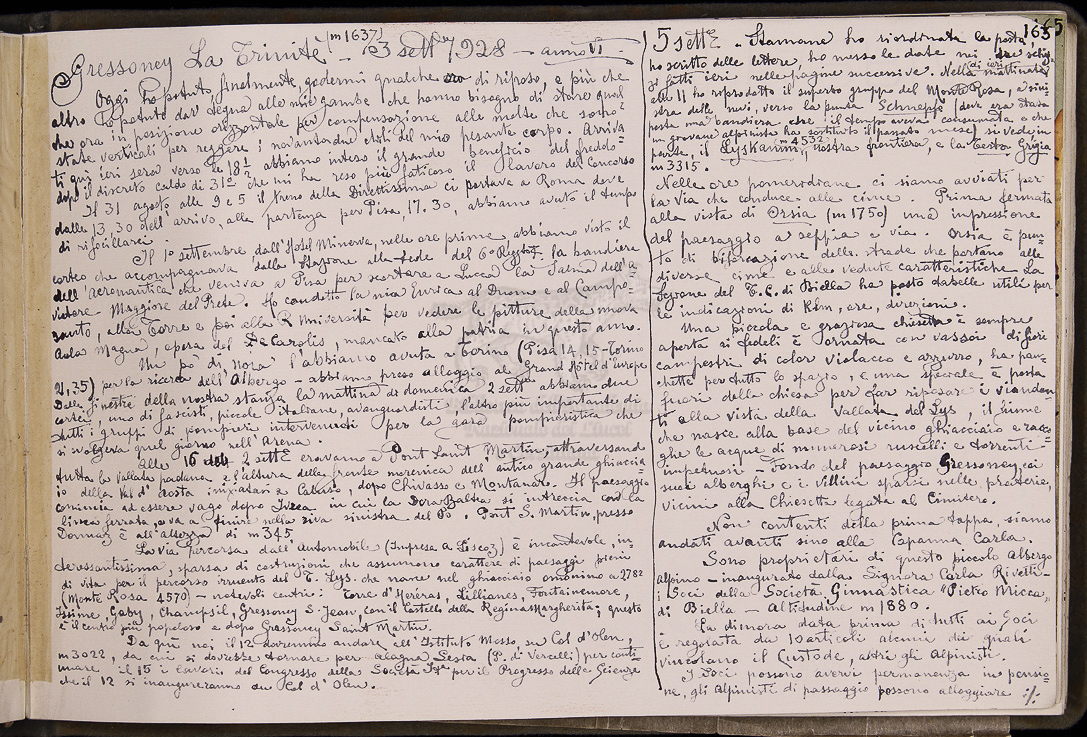 165
Gressoney La Trinité (m 1637) - 3 settᵉ 1928 - anno VI
Oggi ho potuto, finalmente, godermi qualche ora di riposo, e più che
altro ho potuto dar tregua alle mie gambe che hanno bisogno di stare qual
che ora in posizione orizzontale per compensazione alle molte che sono
state verticali per reggere i novantadue chili del mio pesante corpo. Arriva
ti qui ieri sera verso le 18½ abbiamo inteso il grande beneficio del freddo
dopo il discreto caldo di 31° che mi ha reso più faticoso il lavoro del Concorso
Il 31 agosto alle 9 e 5 il treno della Direttissima ci portava a Roma dove
dalle 13,30 dell'arrivo, alla partenza per Pisa, 17.30, abbiamo avuto il tempo
di rifocillarci.
Il 1° settembre dall'Hotel Minerva, nelle ore prime, abbiamo visto il
corteo che accompagnava dalla Stazione alla sede del 6° Reggto la bandiera
dell'Aeronautica che veniva a Pisa per scortare a Lucca la Salma dell'a-
viatore Maggiore del Prete. Ho condotto la mia Enrica al Duomo e al Campo-
santo, alla Torre e poi alla R. Università per vedere le pitture della nuova
Aula Magna, opera del De Carolis, mancato alla patria in questo anno.
Un po' di, Nora l'abbiamo avuta a Torino (Pisa 14.15 - Torino
21,25) per la ricerca dell'Albergo - abbiamo preso alloggio al Grand Hôtel d'Europe
Dalle finestre della nostra stanza la mattina di domenica 2 settᵉ abbiamo due
cortei, uno di fascisti, piccole italiane, avanguardisti, l'altro più importante di
tutti i gruppi di pompieri intervenuti per la gara pompieristica che
si svolgeva quel giorno nell'Arena.
Alle 16 del 2 settᵉ eravamo a Pont Saint Martin, attraversando
tutta la vallata padana e l'altura della fronte morenica dell'antico grande ghiaccia-
io della Val d'Aosta iniziatasi a Caluso, dopo Chivasso e Montanaro. Il paesaggio
comincia ad essere vago dopo Ivrea in cui la Dora Baltea si intreccia con la
linea ferrata, e va a finire sulla riva sinistra del Po. Pont S. Martin, presso
Donnaz è all'altezza di m 345
La via percorsa dall'Automobile (Impresa A. Liscoz) è incantevole, in-
teressantissima, sparsa di costruzioni che assumono carattere di paesaggi pieni
di vita per il percorso irruente del T. Lys. che nasce nel ghiacciaio omonimo a 2782
(Monte Rosa 4570) - notevoli centri: Torre d'Hereras, Lillianes, Fontainemore,
Issime, Gaby, Champsil, Gressoney S. Jean, con il Castello della Regina Margherita; questo
è il centro più popoloso e dopo Gressoney Saint Martin.
Da qui noi il 12 dovremmo andare all'Istituto Mosso, su Col d'Olen,
m 3022, da cui si dovrebbe tornare per Alagna Sesia (P. di Vercelli) per conti-
nuare il 15 i lavori del Congresso della Società Itª per il Progresso delle Scienze
che il 12 si inaugureranno su Col d'Olen.
5 settᵉ - Stamane ho riordinata la posta,
ho scritto delle lettere, ho messo le date nei due schiz
zi fatti ieri nelle pagine successive. Nella mattinata di ieri
alle 11 ho riprodotto il superbo gruppo del Monte Rosa, a sini
stra delle nevi, verso la punta Schneppf (dove era stata
posta una bandiera che il tempo aveva consumata o che
un giovane alpinista ha sostituito il passato mese) si vede in
parte, il Lyskamm, m 4532 nostra frontiera, e la Testa Grigia
m 3315.
Nelle ore pomeridiane ci siamo avviati per
la via che conduce alle cime. Prima fermata
alla vista di Orsia (m 1750) una impressione
del paesaggio a seppia e via. Orsia è pun-
to di biforcazione delle strade che portano alle
diverse cime e alle vedute caratteristiche. La
Sezione del T.C. di Biella ha posto tabelle utili per
le indicazioni di Klm, ore, direzioni.
Una piccola e graziosa chiesetta è sempre
aperta ai fedeli è ornata con vassoi di fiori
campestri di color violaceo e azzurro, ha pan-
chette per tutto lo spazio, e una speciale è posta
fuori della chiesa per far riposare i viandan
ti alla vista della Vallata del Lys, il fiume
che nasce alla base del vicino ghiacciaio e racco-
glie le acque di numerosi ruscelli e torrenti
impetuosi - Fondo del paesaggio Gressoney, coi
suoi alberghi e i villini sparsi nelle praterie,
vicino alla Chiesetta legata al Cimitero.
Non contenti della prima tappa, siamo
andati avanti sino alla Capanna Carla.
Sono proprietari di questo piccolo Albergo
alpino - inaugurato dalla Signora Carla Rivetti -
i Soci della Società Ginnastica "Pietro Micca"
di Biella - Altitudine m 1880.
La dimora data prima di tutti ai Soci
è regolata da 10 articoli alcuni dei quali
vincolano il Custode, altri gli Alpinisti.
I Soci possono avervi permanenza in pensio
ne, gli Alpinisti di passaggio possono alloggiare ./.